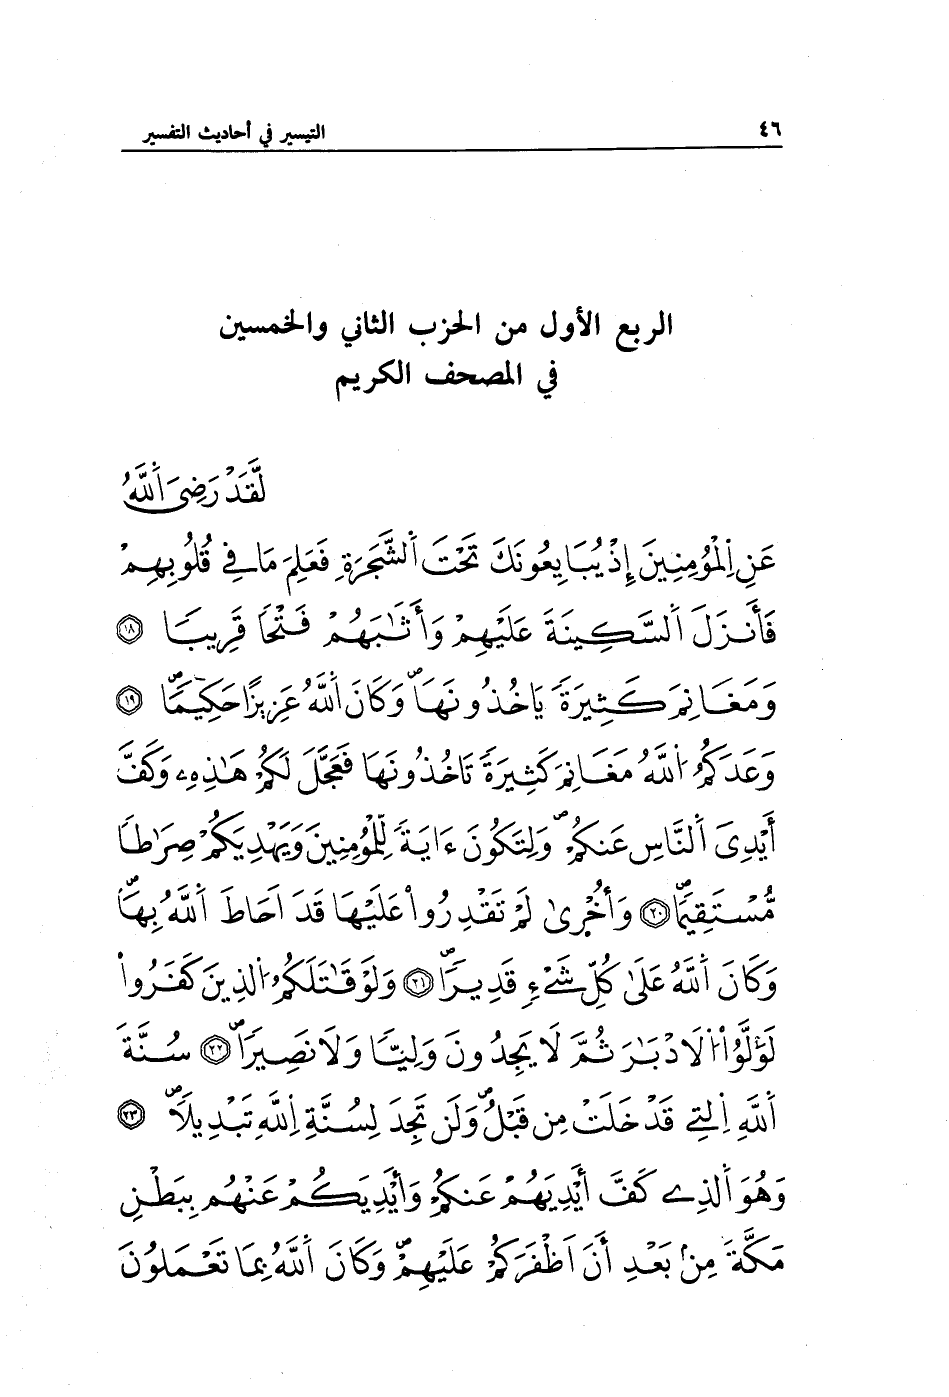 ٤٦ التيسير في أحاديث التفسير
الربع الأول من الحزب الثاني والخمسين
في المصحف الكريم
لَّقَدْ رَضِيَ اَ۬للَّهُ
عَنِ اِ۬لْمُؤْمِنِينَ إِذْ يُبَايِعُونَكَ تَحْتَ اَ۬لشَّجَرَةِ فَعَلِمَ مَا فِے قُلُوبِهِمْ
فَأَنزَلَ اَ۬لسَّكِينَةَ عَلَيْهِمْ وَأَثَٰبَهُمْ فَتْحاٗ قَرِيباٗ ١٨
وَمَغَانِمَ كَثِيرَةٗ يَاخُذُونَهَاۖ وَكَانَ اَ۬للَّهُ عَزِيزاً حَكِيماٗۖ ١٩
وَعَدَكُمُ اُ۬للَّهُ مَغَانِمَ كَثِيرَةٗ تَاخُذُونَهَا فَعَجَّلَ لَكُمْ هَٰذِهِۦ وَكَفَّ
أَيْدِيَ اَ۬لنَّاسِ عَنكُمْۖ وَلِتَكُونَ ءَايَةٗ لِّلْمُؤْمِنِينَ وَيَهْدِيَكُمْ صِرَٰطاٗ
مُّسْتَقِيماٗۖ ٢٠ وَأُخْرىٰ لَمْ تَقْدِرُواْ عَلَيْهَا قَدَ اَحَاطَ اَ۬للَّهُ بِهَاۖ
وَكَانَ اَ۬للَّهُ عَلَىٰ كُلِّ شَےْءٖ قَدِيراٗۖ ٢١ وَلَوْ قَٰتَلَكُمُ اُ۬لذِينَ كَفَرُواْ
لَوَلَّوُاْ اُ۬لَادْبَٰرَ ثُمَّ لَا يَجِدُونَ وَلِيّاٗ وَلَا نَصِيراٗۖ ٢٢ سُنَّةَ
اَ۬للَّهِ اِ۬لتِے قَدْ خَلَتْ مِن قَبْلُۖ وَلَن تَجِدَ لِسُنَّةِ اِ۬للَّهِ تَبْدِيلاٗۖ ٢٣
وَهُوَ اَ۬لذِے كَفَّ أَيْدِيَهُمْ عَنكُمْ وَأَيْدِيَكُمْ عَنْهُم بِبَطْنِ
مَكَّةَ مِنۢ بَعْدِ أَنَ اَظْفَرَكُمْ عَلَيْهِمْۖ وَكَانَ اَ۬للَّهُ بِمَا تَعْمَلُونَ